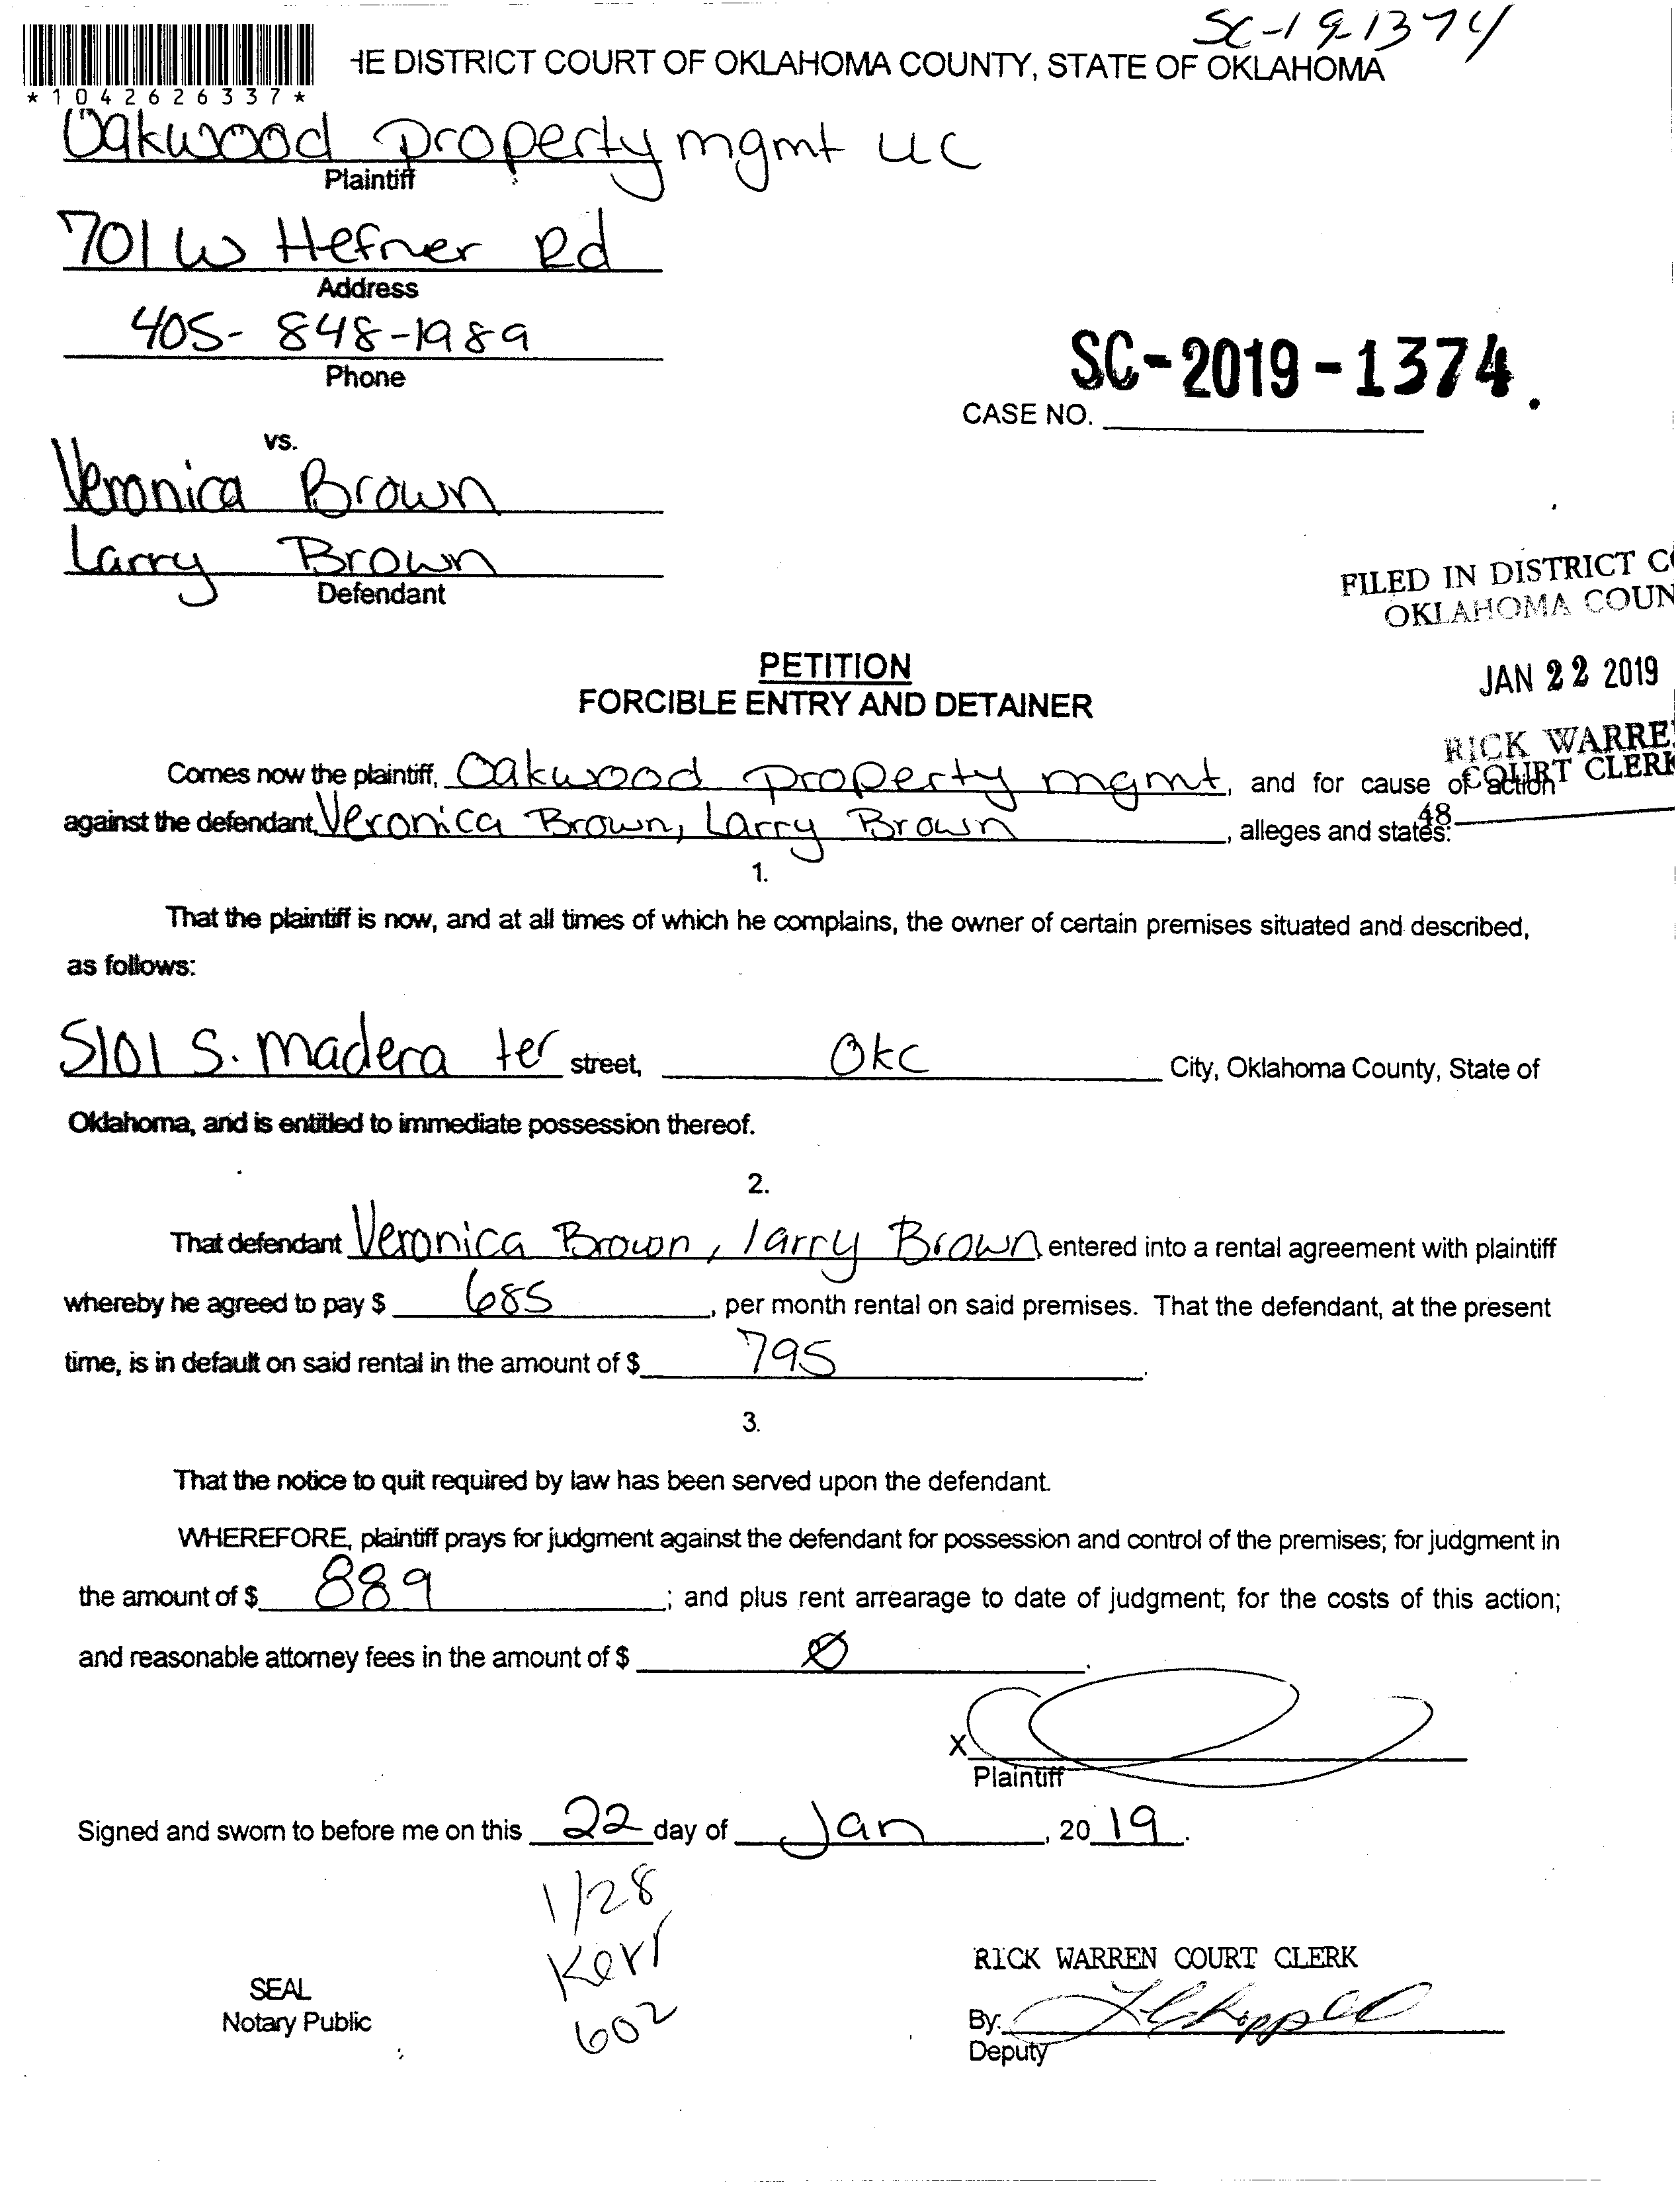 SC-19-1374
HE DISTRICT COURT OF OKLAHOMA COUNTY, STATE OF OKLAHOMA
*1042626337*
Oakwood property mgmt LLC
Plaintiff
701 W Hefner Rd
Address
405-848-1989
Phone
SC-2019-1374.
CASE NO.
vs.
Veronica Brown
Larry Brown
Defendant
FILED IN DISTRICT CO
OKLAHOMA COUN
JAN 22 2019
RICK WARRE
COURT CLERK
48
PETITION
FORCIBLE ENTRY AND DETAINER
Comes now the plaintiff, Oakwood property mgmt, and for cause of action
against the defendant, Veronica Brown, Larry Brown, alleges and states:
1.
That the plaintiff is now, and at all times of which he complains, the owner of certain premises situated and described,
as follows:
5101 S. Madera ter street, Okc City, Oklahoma County, State of
Oklahoma, and is entitled to immediate possession thereof.
2.
That defendant Veronica Brown, larry Brown entered into a rental agreement with plaintiff
whereby he agreed to pay $ 685, per month rental on said premises. That the defendant, at the present
time, is in default on said rental in the amount of $ 795.
3.
That the notice to quit required by law has been served upon the defendant.
WHEREFORE, plaintiff prays for judgment against the defendant for possession and control of the premises; for judgment in
the amount of $ 889; and plus rent arrearage to date of judgment; for the costs of this action;
and reasonable attorney fees in the amount of $ Ø.
X
Plaintiff
Signed and sworn to before me on this 22 day of Jan, 2019.
1/28
Kerr
602
SEAL
Notary Public
RICK WARREN COURT CLERK
By:
Deputy